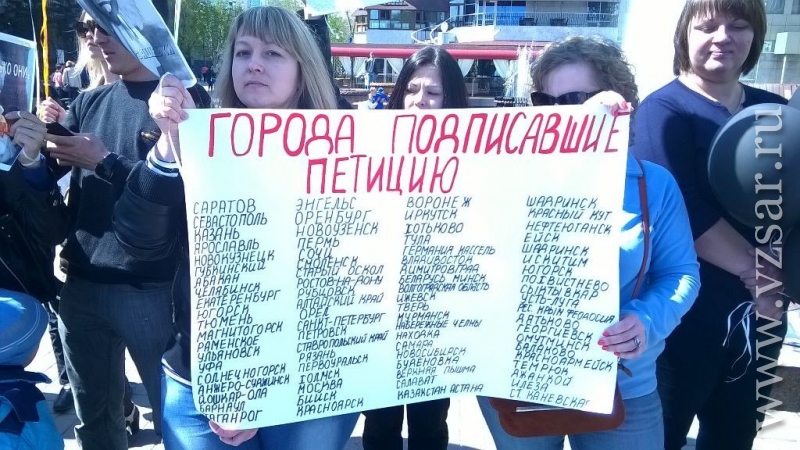 ГОРОДА ПОДПИСАВШИЕ
ПЕТИЦИЮ
САРАТОВ
СЕВАСТОПОЛЬ
КАЗАНЬ
ЯРОСЛАВЛЬ
НОВОКУЗНЕЦК
ГУБКИНСКИЙ
АБАКАН
ЧЕЛЯБИНСК
ЕКАТЕРЕНБУРГ
ЮГОРСК
ТЮМЕНЬ
МАГНИТОГОРСК
РАМЕНСКОЕ
УЛЬЯНОВСК
УФА
СОЛНЕЧНОГОРСК
АНЖЕРО-СУДЖИНСК
ЙОШКАР-ОЛА
БАРНАУЛ
ТАГАНРОГ
ЭНГЕЛЬС
ОРЕНБУРГ
НОВОУЗЕНСК
ПЕРМЬ
СОЧИ
СМОЛЕНСК
СТАРЫЙ ОСКОЛ
РОСТОВ-НА-ДОНУ
РУБЦОВСК
АЛТАЙСКИЙ КРАЙ
ОРЕЛ
САНКТ-ПЕТЕРБУРГ
ПЕТРОВСК
СТАВРОПОЛЬСКИЙ КРАЙ
РЯЗАНЬ
ПЕРВОУРАЛЬСК
ХОЛМСК
МОСКВА
БИЙСК
КРАСНОЯРСК
ВОРОНЕЖ
ИРКУТСК
ХОТЬКОВО
ТУЛА
ГЕРМАНИЯ КАССЕЛЬ
ВЛАДИВОСТОК
ДИМИТРОВГРАД
БЕЛАРУСЬ МИНСК
ВОЛГОГРАДСКАЯ ОБЛАСТЬ
ИЖЕВСК
ТВЕРЬ
МУРМАНСК
НАБЕРЕЖНЫЕ ЧЕЛНЫ
НАХОДКА
САМАРА
НОВОСИБИРСК
БУДЕНОВКА
ВЕРХНЯЯ ПЫШМА
САЛАВАТ
КАЗАХСТАН АСТАНА
ШАДРИНСК
КРАСНЫЙ КУТ
НЕФТЕЮГАНСК
ЕЙСК
ШАДРИНСК
ИСКИТИМ
ЮГОРСК
ПОХВИСТНЕВО
СЫКТЫВКАР
УСТЬ-ЛУГА
РЕС. КРЫМ ФЕОДОССИЯ
ДЯТЬКОВО
ГЕОРГИЕВСК
ОМУТНИНСК
КРАСНОАРМЕЙСК
ТЕМРЮК
ДЖАНКОЙ
ИЛЕЗА
СТ. КАНЕВСКАЯ
www.vzsar.ru